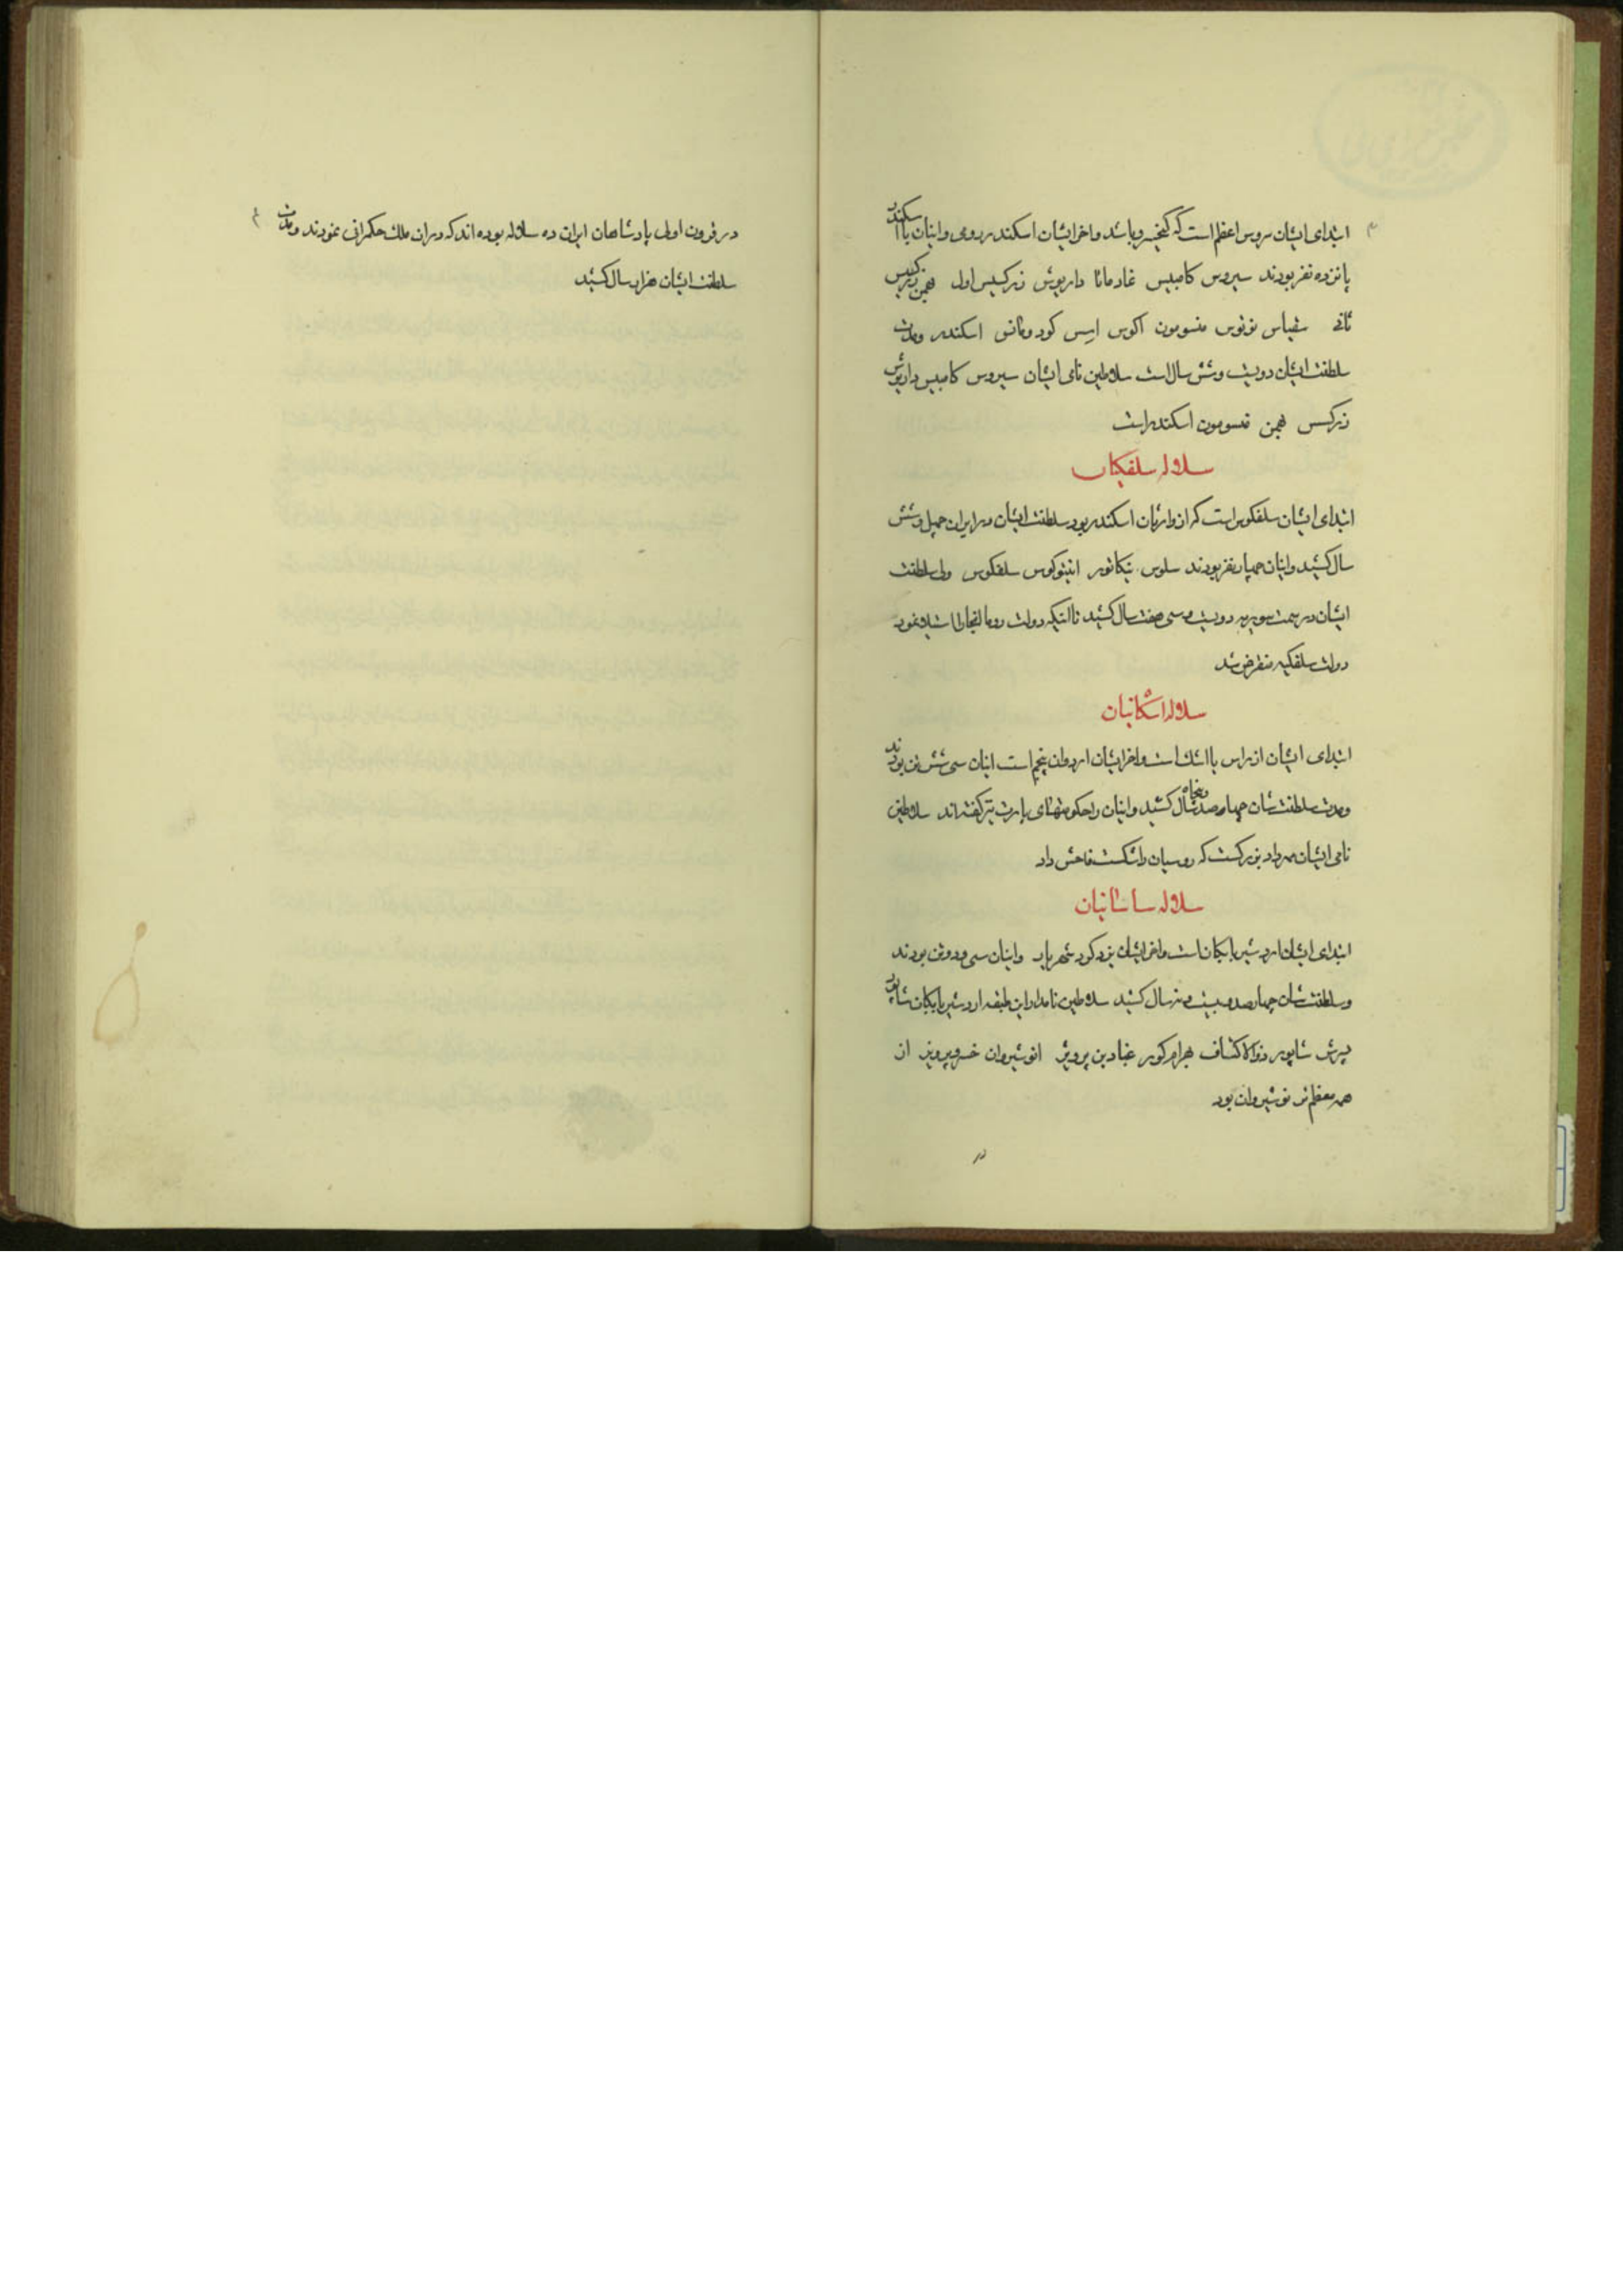 ۳
ابتدای ایشان سروس اعظم است که کیخسرو باشد و اخر ایشان اسکندر رومی و اینان با اسکندر
پانزده نفر بودند سیروس کامبیس غادماتا داریوش زرکسیس اول بهمن زرکسیس
ثانی سقیاس نوتوس منسومون اکوس اسس کودومانس اسکندر و مدت
سلطنت ایشان دویست و شش سال است سلاطین نامی ایشان سیروس کامبیس داریوش
زرکسس بهمن منسومون اسکندر است
سلاله سلفکیان
ابتدای ایشان سلفکوس است که از وارثان اسکندر بود سلطنت ایشان در ایران چهل و شش
سال کشید و اینان چهار نفر بودند سلوس نیکاتور انتیوکوس سلفکوس ولی سلطنت
ایشان در سمت سوریه دویست و سی هفت سال کشید تا اینکه دولت روما انجا را استیلا نمود
دولت سلفکیه منقرض شد
سلاله اشکانیان
ابتدای ایشان از راس یا اشک است و اخر ایشان اردوان پنجم است اینان سی شش تن بودند
و مدت سلطنت شان چهار صد و پنجاه سال کشید و اینان را حکومتهای پارت نیز گفته اند سلاطین
نامی ایشان مهرداد بزرکست که روسیان را شکست فاحش داد
سلاله ساسانیان
ابتدای ایشان اردشیر بابکان است و اخر ایشان یزدکرد شهریار و اینان سی و دو تن بودند
و سلطنت شان چهار صد و بیست و نه سال کشید سلاطین نامدار این طبقه اردشیر بابکان شاپور
پسرش شاپور ذوالاکتاف بهرام کور غباد بن پرویز انوشیروان خسرو پرویز از
همه معظم تر نوشیروان بود
در
۴
در قرون اولی پادشاهان ایران ده سلاله بوده اند که در ان ملک حکمرانی نمودند و مدت
سلطنت ایشان هزار سال کشید